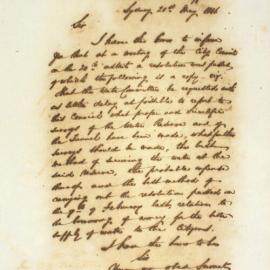 Sydney 21st May 1846
Sir
I have the honor to inform
you that at a meeting of the City Council
on the 20th instant a resolution was passed,
of which the following is a copy viz
That the Water Committee be requested with
as little delay as possible to report to
this Council what proper and scientific
surveys of the Water Reserve and of
the Tunnel have been made, what further
surveys should be made, the best
method of securing the water at the
said Reserve, the probable expense
thereof and the best method of
carrying out the resolution passed on
the 9th of February last, relative to
the borrowing of money for the better
supply of water to the Citizens.
I have the honor to be
Sir
Your obed Servant